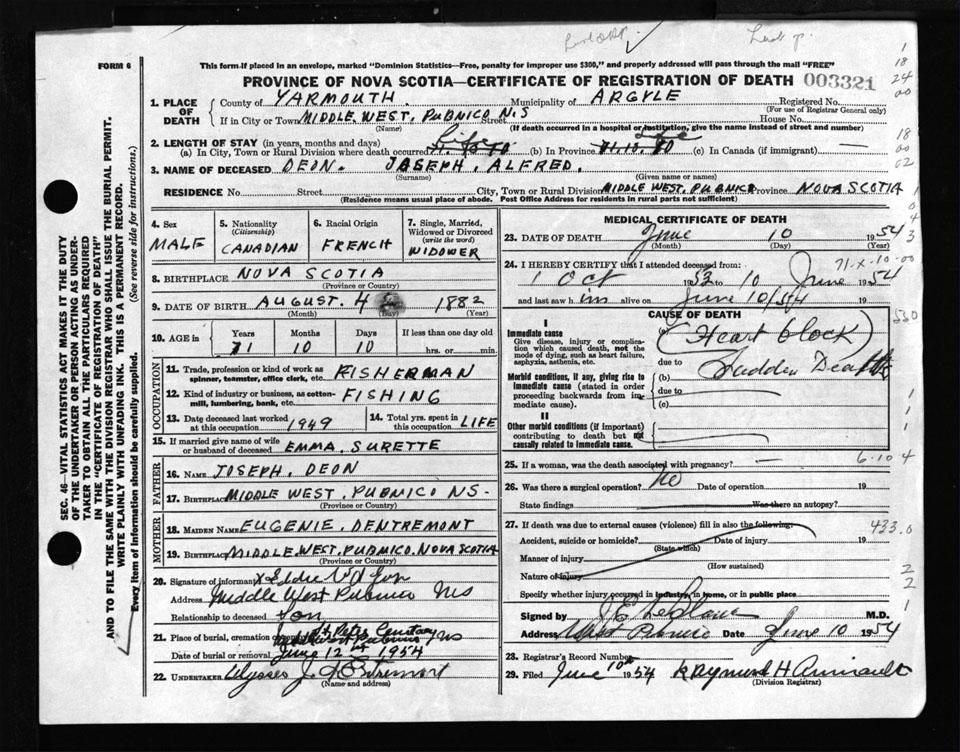 FORM 6
This form if placed in an envelope, marked "Dominion Statistics—Free, penalty for improper use $300," and properly addressed will pass through the mail "FREE"
PROVINCE OF NOVA SCOTIA—CERTIFICATE OF REGISTRATION OF DEATH 003321
1. PLACE OF DEATH
County of YARMOUTH. Municipality of ARGYLE Registered No.
(For use of Registrar General only)
If in City or Town MIDDLE. WEST. PUBNICO N.S Street House No.
(Name) (If death occurred in a hospital or institution, give the name instead of street and number)
2. LENGTH OF STAY (in years, months and days)
(a) In City, Town or Rural Division where death occurred Life (b) In Province Life 71.10.10 (c) In Canada (if immigrant) —
3. NAME OF DECEASED DEON. JOSEPH. ALFRED.
(Surname) (Given name or names)
RESIDENCE No. Street City, Town or Rural Division MIDDLE WEST. PUBNICO Province NOVA SCOTIA
(Residence means usual place of abode. Post Office Address for residents in rural parts not sufficient)
SEC. 46—VITAL STATISTICS ACT MAKES IT THE DUTY
OF THE UNDERTAKER OR PERSON ACTING AS UNDERTAKER TO OBTAIN ALL THE PARTICULARS REQUIRED
IN THE "CERTIFICATE OF REGISTRATION OF DEATH"
AND TO FILE THE SAME WITH THE DIVISION REGISTRAR WHO SHALL ISSUE THE BURIAL PERMIT.
WRITE PLAINLY WITH UNFADING INK. THIS IS A PERMANENT RECORD.
Every item of information should be carefully supplied. (See reverse side for instructions.)
4. Sex MALE
5. Nationality (Citizenship) CANADIAN
6. Racial Origin FRENCH
7. Single, Married, Widowed or Divorced (write the word) WIDOWER
8. BIRTHPLACE NOVA SCOTIA
(Province or Country)
9. DATE OF BIRTH AUGUST. 4 1882
(Month) (Day) (Year)
10. AGE in Years 71 Months 10 Days 10 If less than one day old hrs. or min.
OCCUPATION
11. Trade, profession or kind of work as spinner, teamster, office clerk, etc. FISHERMAN
12. Kind of industry or business, as cotton-mill, lumbering, bank, etc. FISHING
13. Date deceased last worked at this occupation 1949
14. Total yrs. spent in this occupation LIFE
15. If married give name of wife or husband of deceased EMMA. SURETTE
FATHER
16. NAME JOSEPH. DEON
17. BIRTHPLACE MIDDLE WEST. PUBNICO NS-
MOTHER
18. MAIDEN NAME EUGENIE. DENTREMONT
19. BIRTHPLACE MIDDLE.WEST.PUBNICO.NOVA SCOTIA
(Province or Country)
20. Signature of informant x Eddie
Address Middle West Pubnico NS
Relationship to deceased Son
21. Place of burial, cremation St Peter Cemetary
West Pubnico NS
Date of burial or removal June 12th 1954
22. UNDERTAKER Ulysses J. d'Entremont
(Name and address)
MEDICAL CERTIFICATE OF DEATH
23. DATE OF DEATH June 10 1954
(Month) (Day) (Year)
71-X-10-00
24. I HEREBY CERTIFY that I attended deceased from:
1 Oct 1953 to 10 June 1954
and last saw him alive on June 10/54 19
CAUSE OF DEATH
I
Immediate cause
Give disease, injury or complication which caused death, not the mode of dying, such as heart failure, asphyxia, asthenia, etc.
(a) Heart block
due to Sudden Death
Morbid conditions, if any, giving rise to immediate cause (stated in order proceeding backwards from immediate cause).
(b)
due to
(c)
II
Other morbid conditions (if important) contributing to death but not causally related to immediate cause.
25. If a woman, was the death associated with pregnancy? — 6-10 4
26. Was there a surgical operation? No Date of operation 19
State findings Was there an autopsy?
27. If death was due to external causes (violence) fill in also the following: 433.0
Accident, suicide or homicide? Date of injury 19
(State which)
Manner of injury
(How sustained)
Nature of injury
Specify whether injury occurred in industry, in home, or in public place
Signed by J E LeBlanc M.D.
Address West Pubnico Date June 10 1954
28. Registrar's Record Number
29. Filed June 10th 1954 Raymond H Amirault
(Division Registrar)